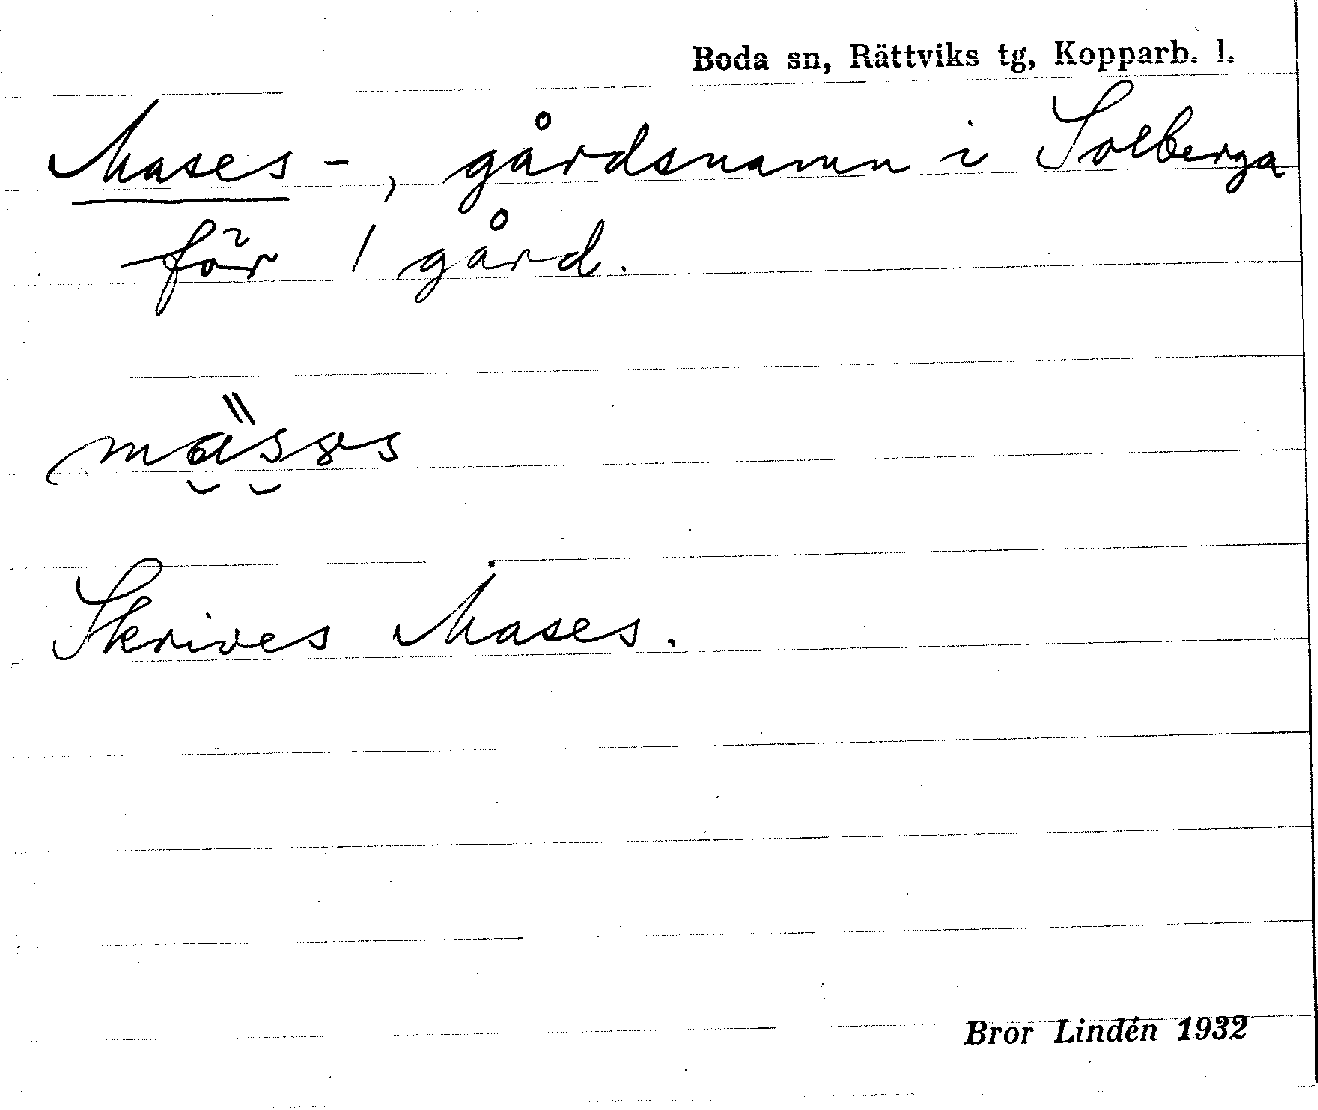 Boda sn, Rättviks tg, Kopparb. l.
Mases-, gårdsnamn i Solberga
för 1 gård.
Skrives Mases.
Bror Lindén 1932